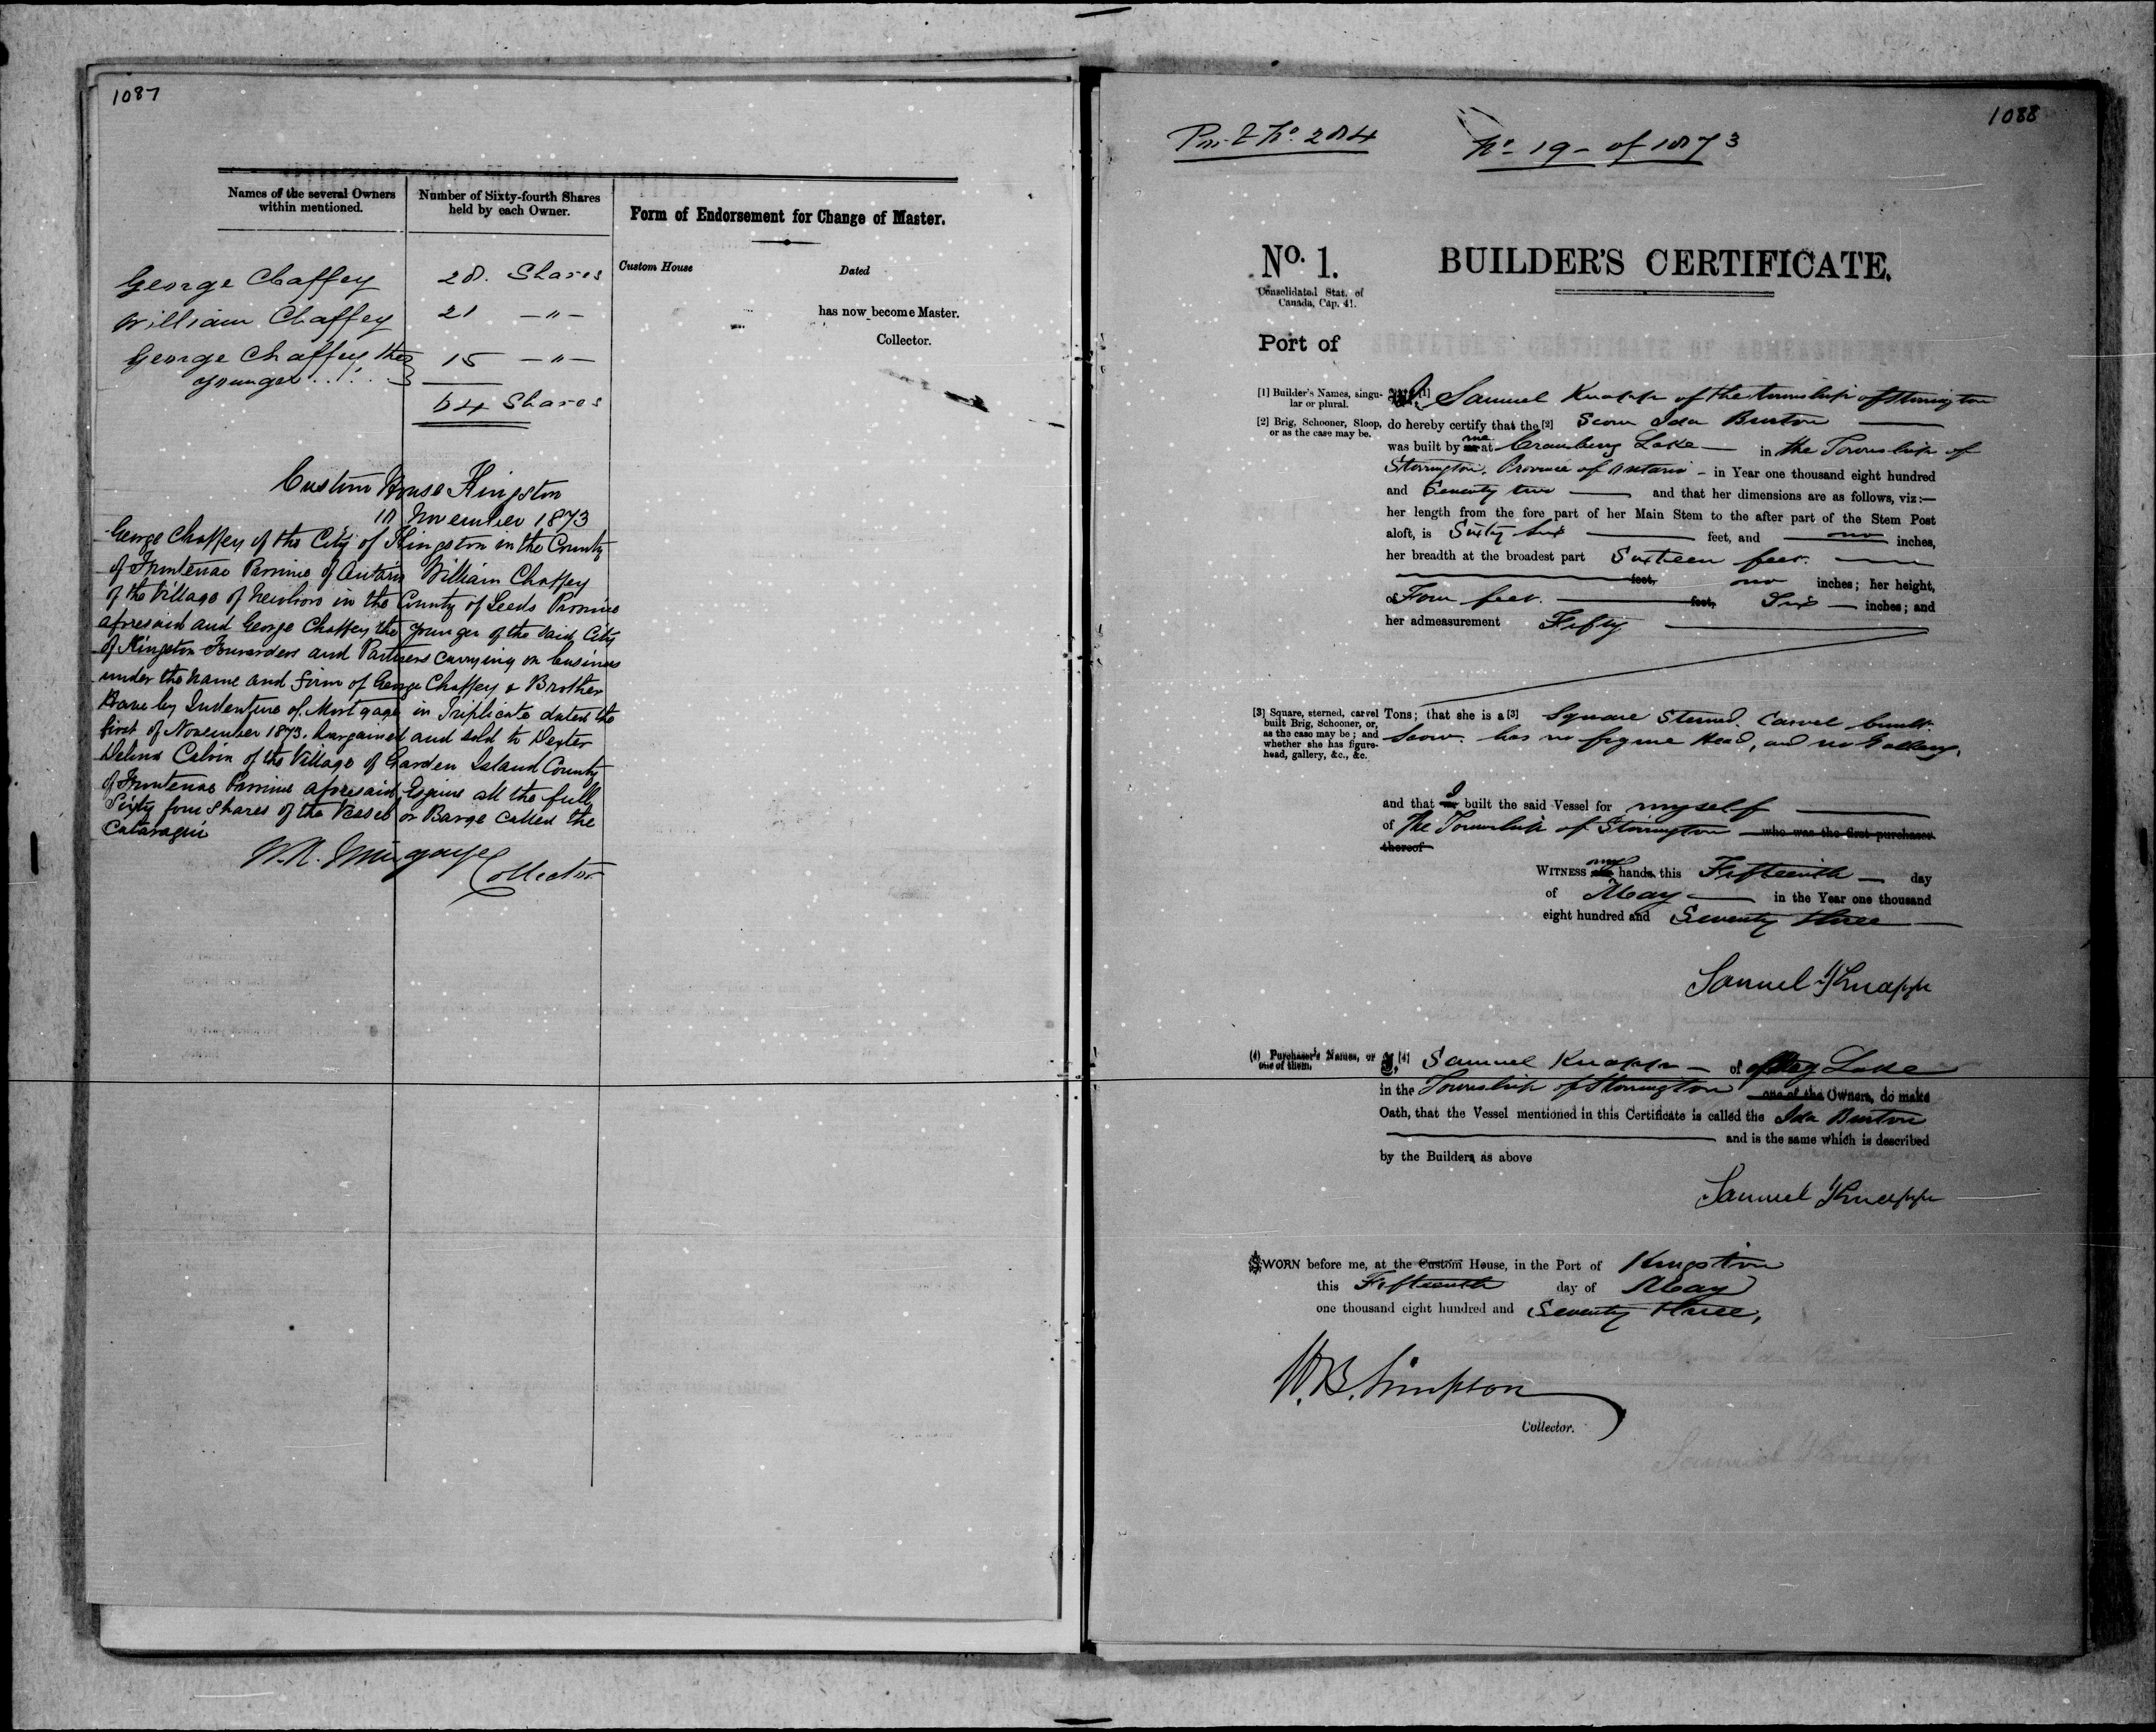 1087
Names of the several Owners within mentioned.
Number of Sixty-fourth Shares held by each Owner.
Form of Endorsement for Change of Master.
George Chaffey 28. Shares
William Chaffey 21 — " —
George Chaffey the younger 15 — " —
64 Shares
Custom House
Dated
has now become Master.
Collector.
Custom House Kingston
November 1873
George Chaffey of the City of Kingston in the County
of Frontenac Province of Ontario William Chaffey
of the Village of Newboro in the County of Leeds Province
aforesaid and George Chaffey the younger of the said City
of Kingston Forwarders and Partners carrying on business
under the name and firm of George Chaffey & Brother
Have by Indenture of Mortgage in Triplicate dated the
first of November 1873. bargained and sold to Dexter
Calvin of the Village of Garden Island County
of Frontenac Province aforesaid Esquire all the full
Sixty four shares of the Vessel or Barge called the
Cataraqui
Collector
1088
No. 284
No. 19 - of 1873
No. 1.
BUILDER'S CERTIFICATE.
Consolidated Stat. of
Canada, Cap. 41.
Port of
[1] Builder's Names, singular or plural.
I [1] Samuel Knapp of the township of Storrington
[2] Brig, Schooner, Sloop, or as the case may be.
do hereby certify that the [2] Scow Ida Burton
was built by me at Cranberry Lake — in the Township of
Storrington, Province of Ontario - in Year one thousand eight hundred
and Seventy two — and that her dimensions are as follows, viz:—
her length from the fore part of her Main Stem to the after part of the Stem Post
aloft, is Sixty Six — feet, and — no inches,
her breadth at the broadest part Sixteen feet. —
feet, no inches; her height,
of Four feet. — feet, Six — inches; and
her admeasurement Fifty —
[3] Square, sterned, carvel built Brig, Schooner, or, as the case may be; and whether she has figure-head, gallery, &c., &c.
Tons; that she is a [3] Square Sterned. Carvel built.
Scow. has no figure Head, and no Gallery.
and that I built the said Vessel for myself —
of The Township of Storrington who was the first purchaser
thereof
WITNESS my hands this Fifteenth — day
of May — in the Year one thousand
eight hundred and Seventy three
Samuel Knapp
(4) Purchaser's Names, or one of them.
I, [4] Samuel Knapp — of Dog Lake
in the Township of Storrington one of the Owners, do make
Oath, that the Vessel mentioned in this Certificate is called the Ida Burton
— and is the same which is described
by the Builders as above
Samuel Knapp
SWORN before me, at the Custom House, in the Port of Kingston
this Fifteenth day of May
one thousand eight hundred and Seventy three,
W. B. Simpson
Collector.